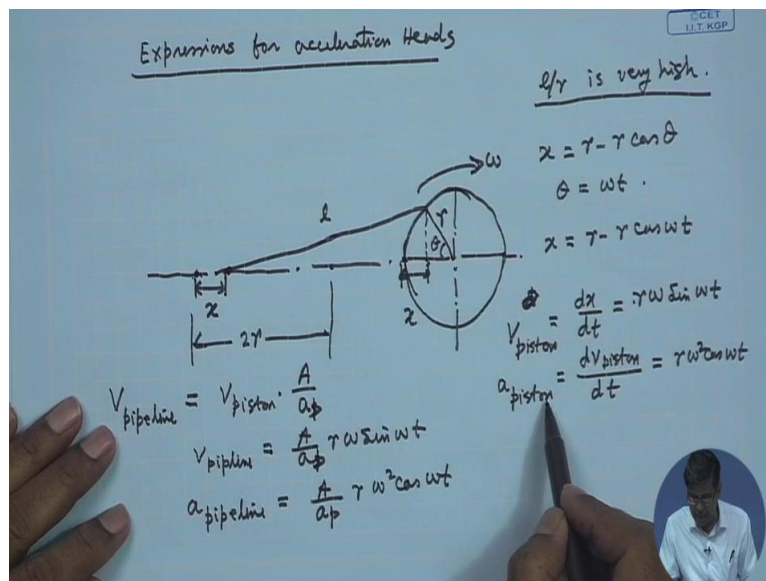 ©CET
I.I.T. KGP
Expressions for acceleration Heads
l/r is very high.
x = r - r cosθ
θ = ωt .
x = r - r cos ωt
V piston = dx/dt = rω Sin ωt
a piston = dVpiston/dt = r ω² cos ωt
ω
l
r
θ
x
x
2r
V pipeline = V piston . A/ap
V pipline = A/ap r ω Sin ωt
a pipeline = A/ap r ω² cos ωt